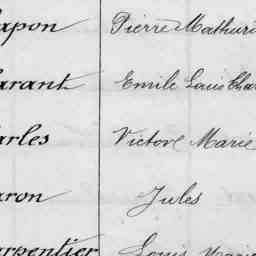 apon Pierre Mathuri
arant Emile Louis Char
arles Victor Marie
aron Jules
arpentier Louis Marie